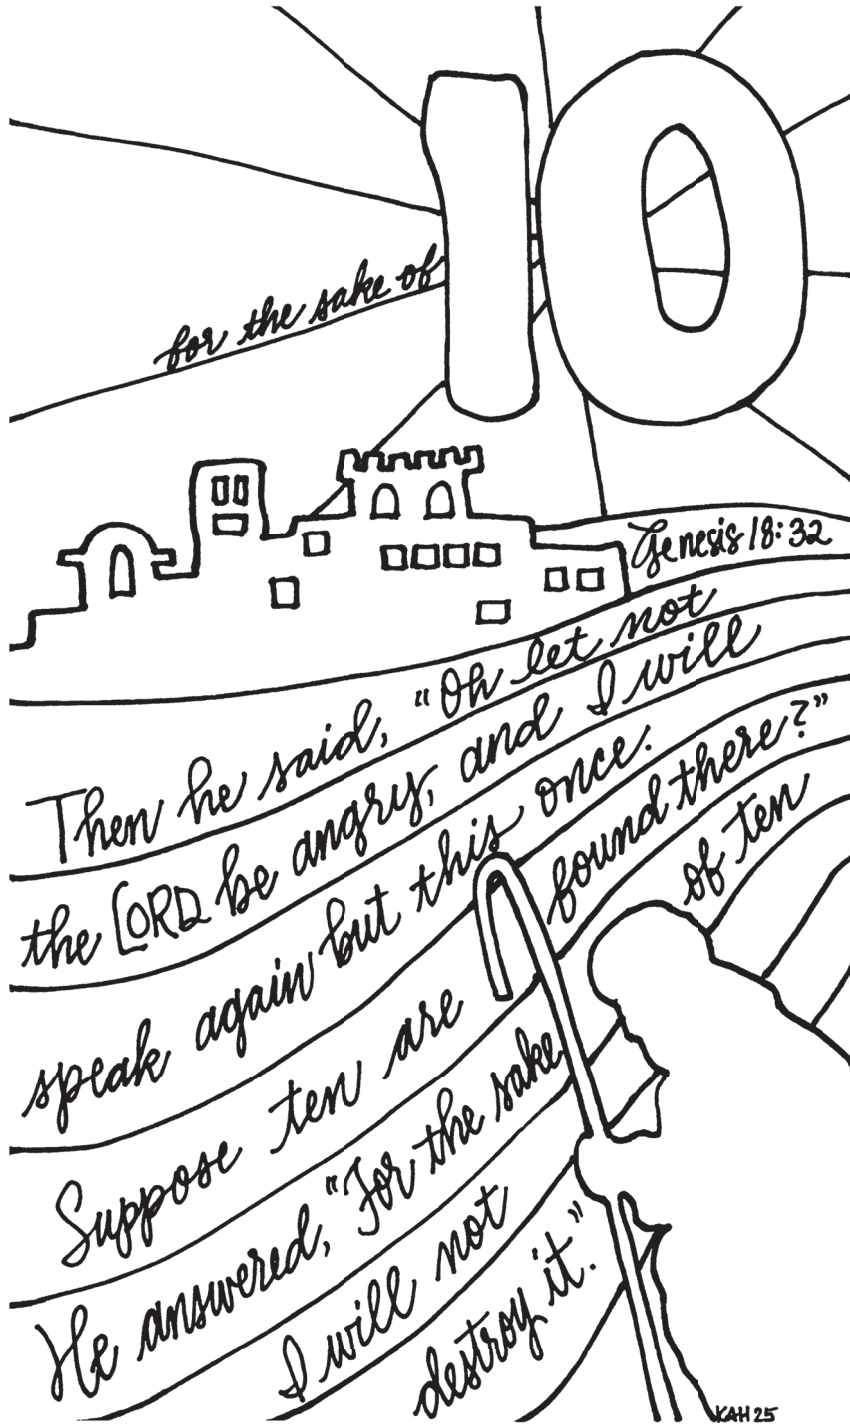 for the sake of 10
Genesis 18:32
Then he said, "Oh let not
the LORD be angry, and I will
speak again but this once.
Suppose ten are found there?"
He answered, "For the sake of ten
I will not
destroy it."
KAH 25